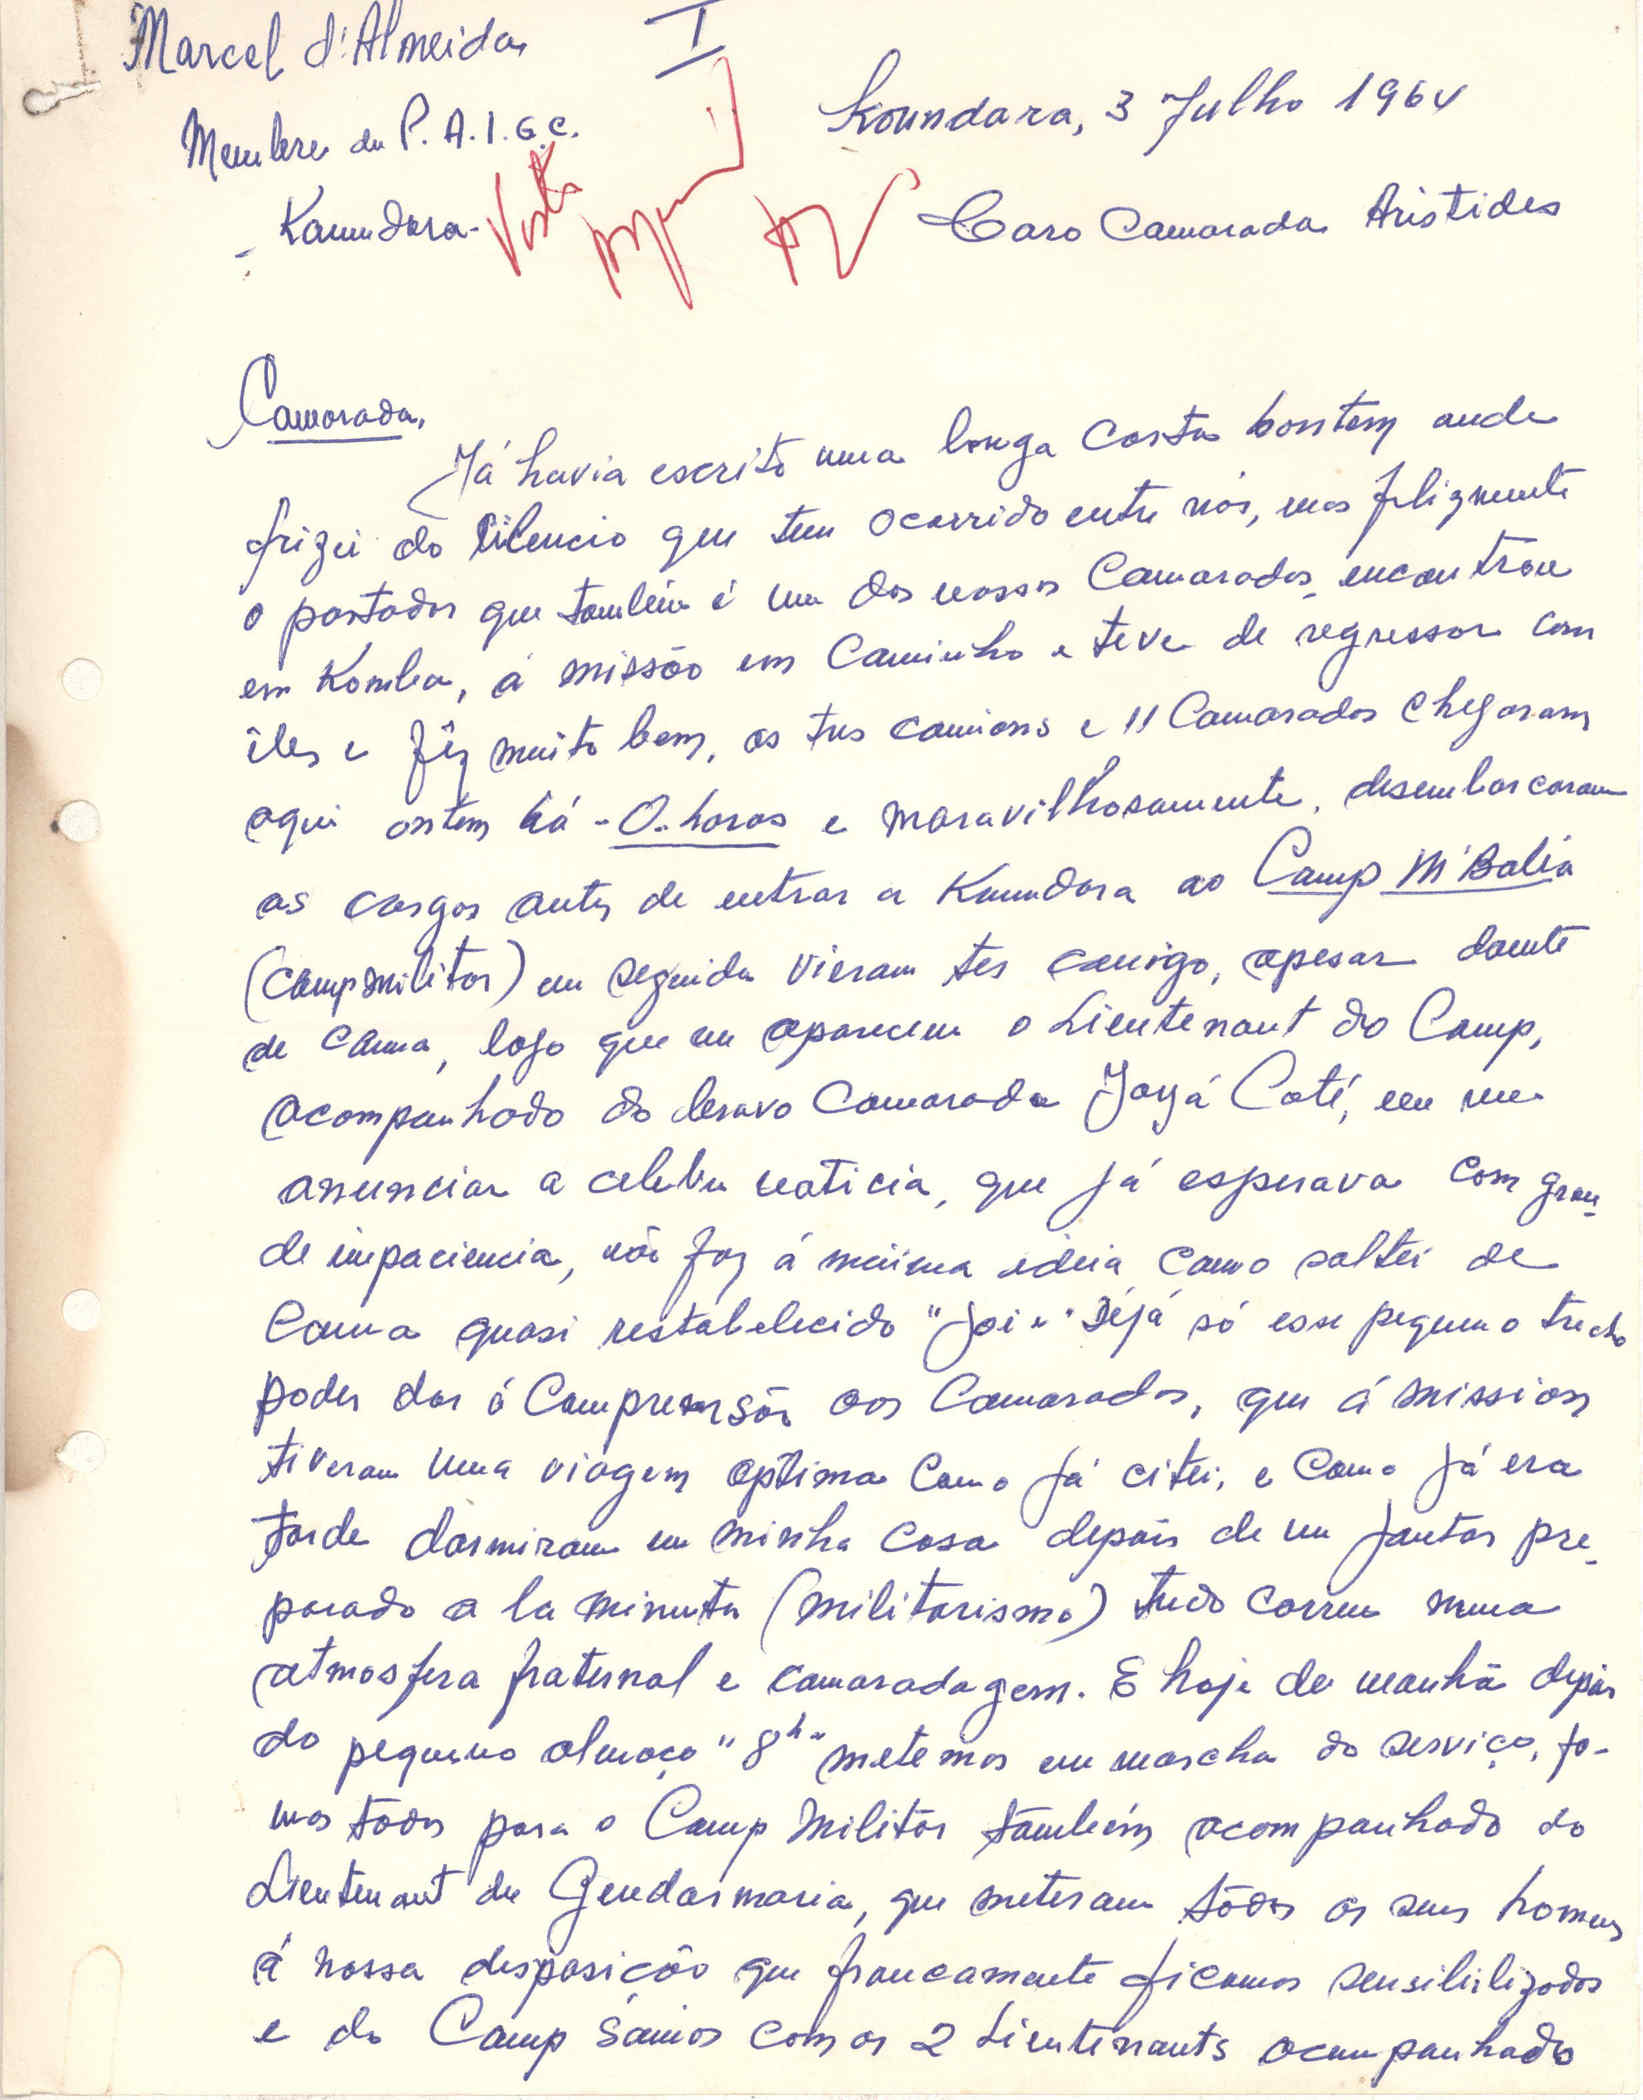 Marcel d'Almeida
I
Membre du P.A.I.G.C.
Koundara, 3 Julho 1964
Kaundara-
Visto
Caro Camarada Aristides
Camarada,
Já havia escrito uma longa carta hontem onde
frizei do silencio que tem ocorrido entre nós, mas felizmente
o portador que também é um dos nossos Camaradas, encontrou
em Komba, á missão em Caminho e teve de regressar com
êles e fêz muito bem, os tres camions e 11 Camaradas chegaram
aqui ontem há -0.horas e maravilhosamente, desembarcaram
as cargas antes de entrar a Kaundara ao Camp M'Balia
(camp militar) em seguida vieram ter comigo, apesar doente
de cama, logo que me apareceu o Lieutenant do Camp,
acompanhado do bravo Camarada Joyá Coté, em me
anunciar a celebre noticia, que já esperava com gran-
de impaciencia, não faz á minima ideia como saltei de
Cama quasi restabelecido "joie" Déjá só esse pequeno trecho
poder dar á Compreensão aos Camaradas, que á mission
tiveram uma viagem optima como já citei, e como já era
tarde dormiram em minha casa depois de um jantar pre-
parado a la minuta (militarismo) tudo correu numa
atmosfera fraternal e camaradagem. E hoje de manhã depois
do pequeno almoço "8h" metemos em marcha do serviço, fo-
mos todos para o Camp Militar também acompanhado do
Lieutenant de Gendarmaria, que meteram todos os seus homens
á nossa disposição que francamente ficamos sensibilizados
e do Camp saimos com os 2 Lieutenants acompanhado